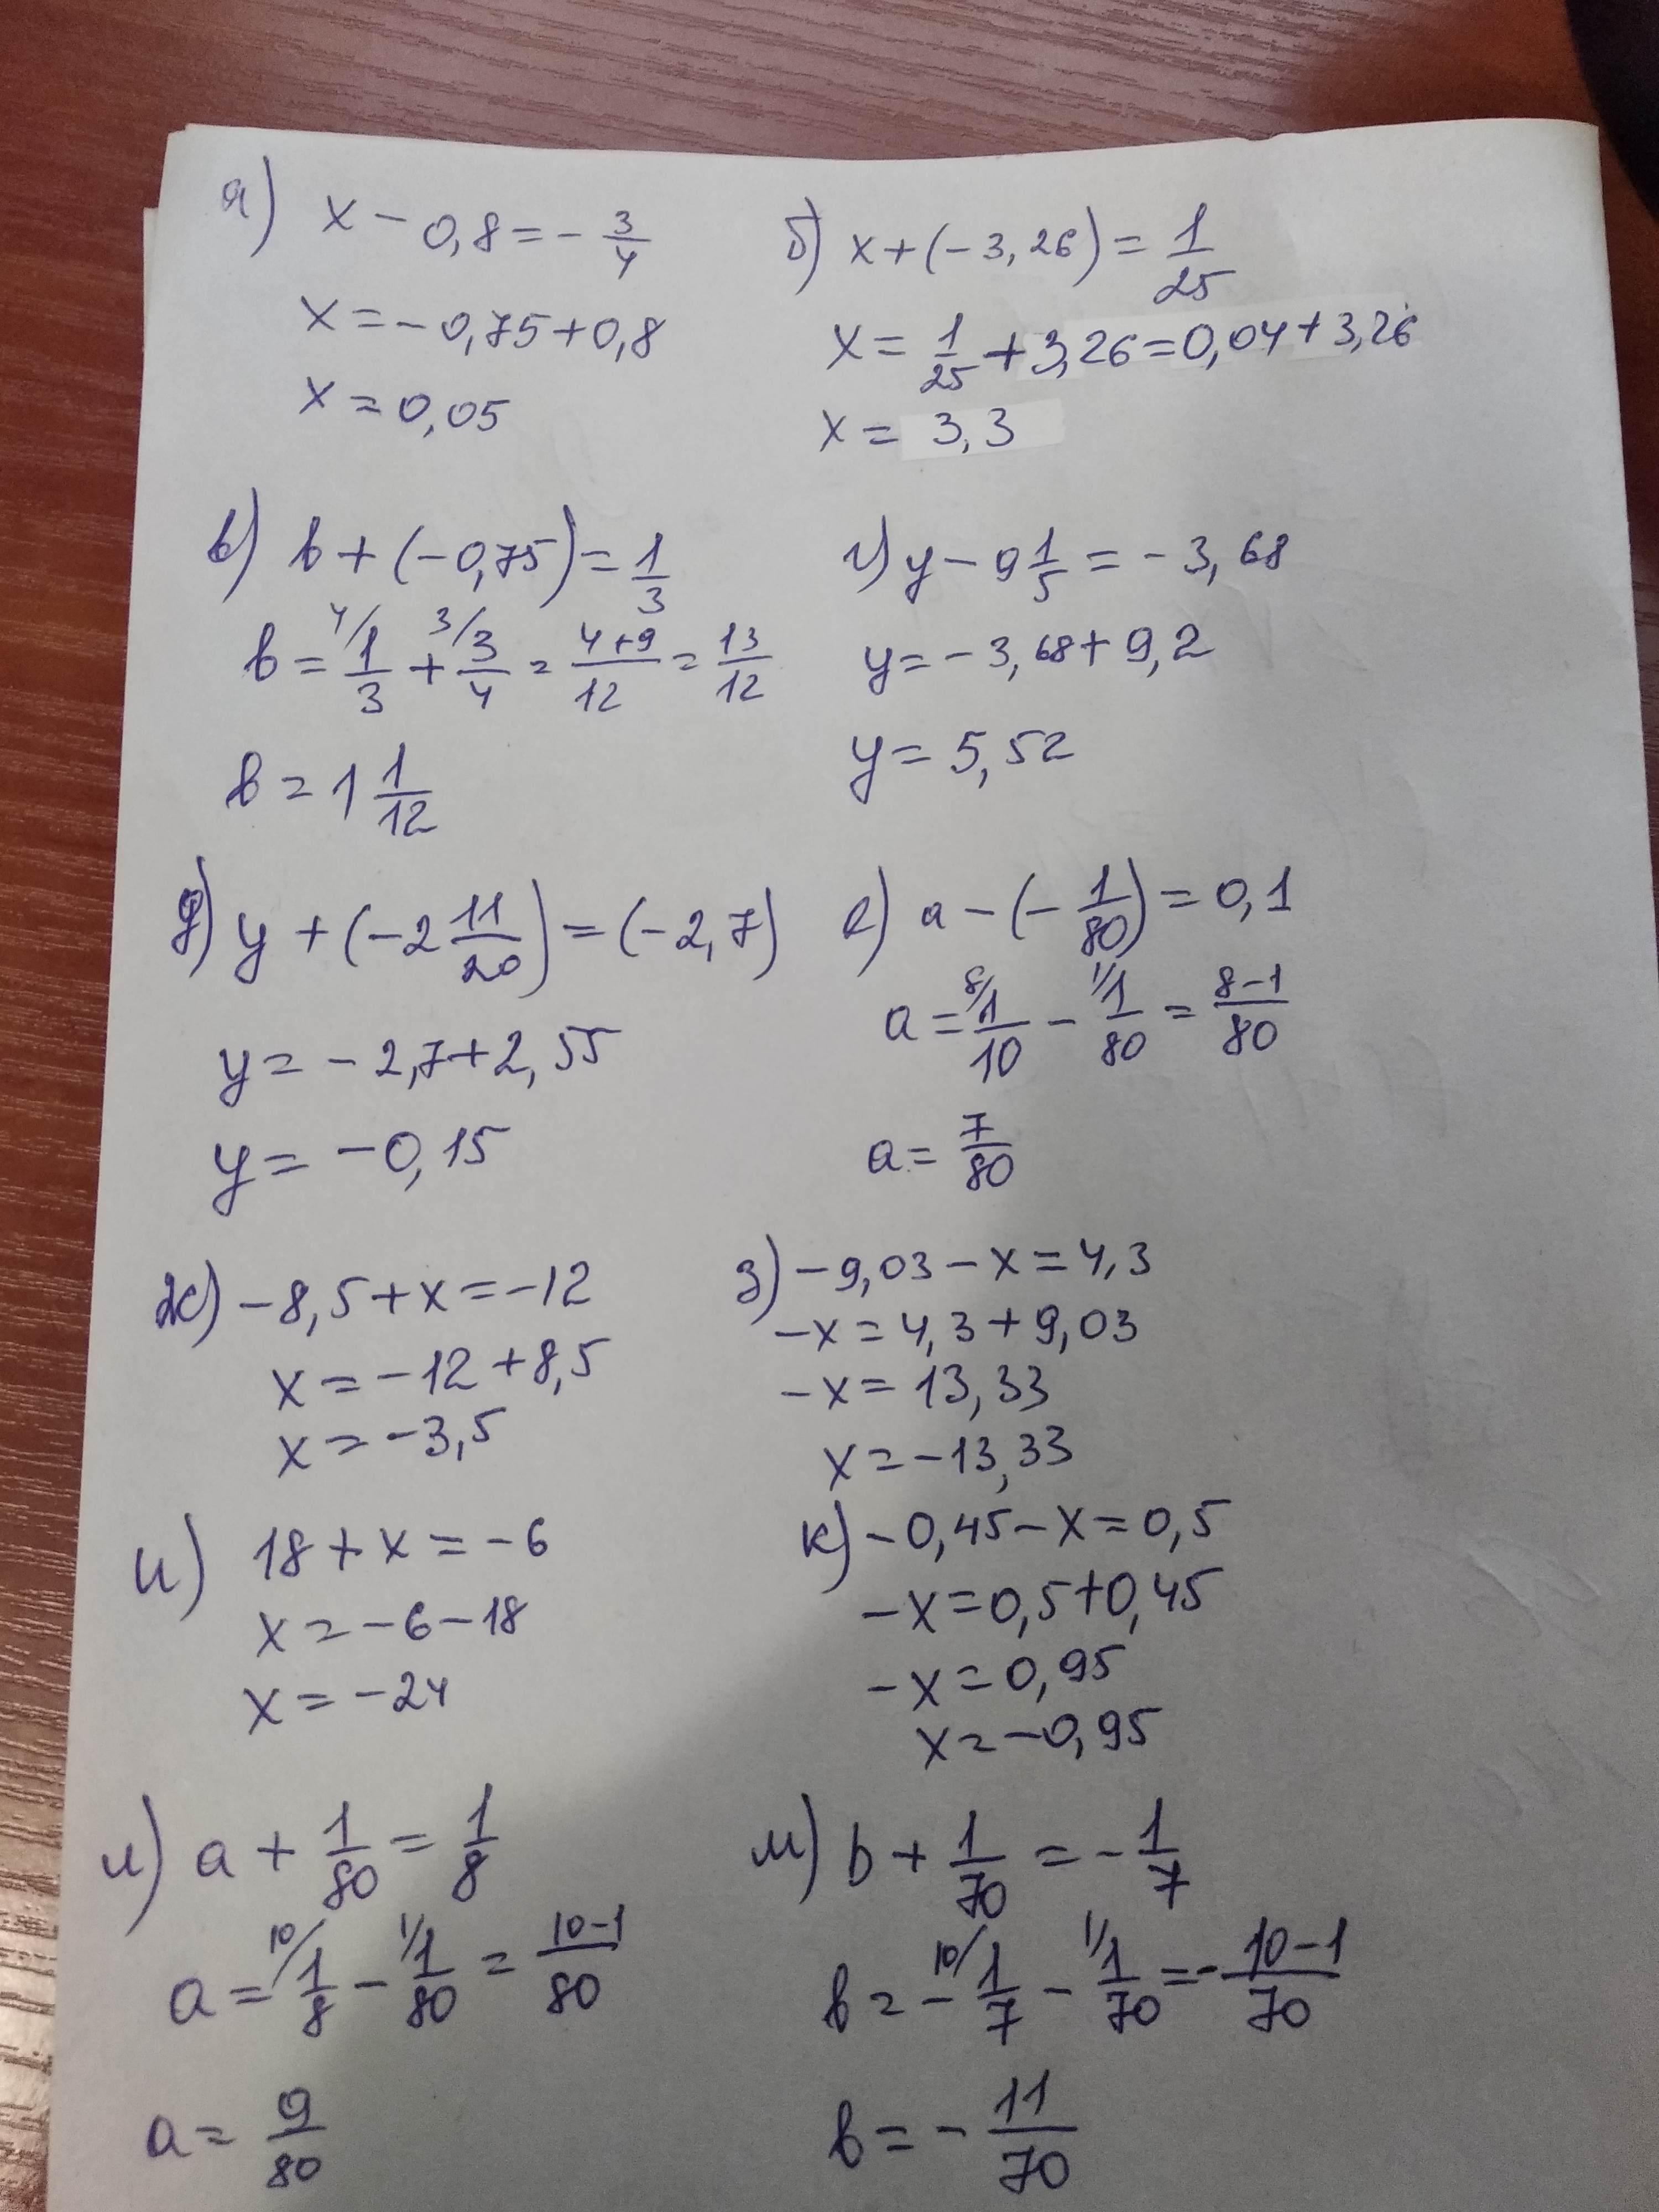 а) x - 0,8 = - 3/4
x = - 0,75 + 0,8
x = 0,05
б) x + (- 3,26) = 1/25
x = 1/25 + 3,26 = 0,04 + 3,26
x = 3,3
в) b + (- 0,75) = 1/3
b = 4/ 1/3 + 3/ 3/4 = 4+9/12 = 13/12
b = 1 1/12
г) y - 9 1/5 = - 3,68
y = - 3,68 + 9,2
y = 5,52
д) y + (- 2 11/20) = (- 2,7)
y = - 2,7 + 2,55
y = - 0,15
е) a - (- 1/80) = 0,1
a = 8/ 1/10 - 1/ 1/80 = 8-1/80
a = 7/80
ж) - 8,5 + x = - 12
x = - 12 + 8,5
x = - 3,5
з) - 9,03 - x = 4,3
- x = 4,3 + 9,03
- x = 13,33
x = - 13,33
и) 18 + x = - 6
x = - 6 - 18
x = - 24
к) - 0,45 - x = 0,5
- x = 0,5 + 0,45
- x = 0,95
x = - 0,95
л) a + 1/80 = 1/8
a = 10/ 1/8 - 1/ 1/80 = 10-1/80
a = 9/80
м) b + 1/70 = - 1/7
b = - 10/ 1/7 - 1/ 1/70 = - 10-1/70
b = - 11/70